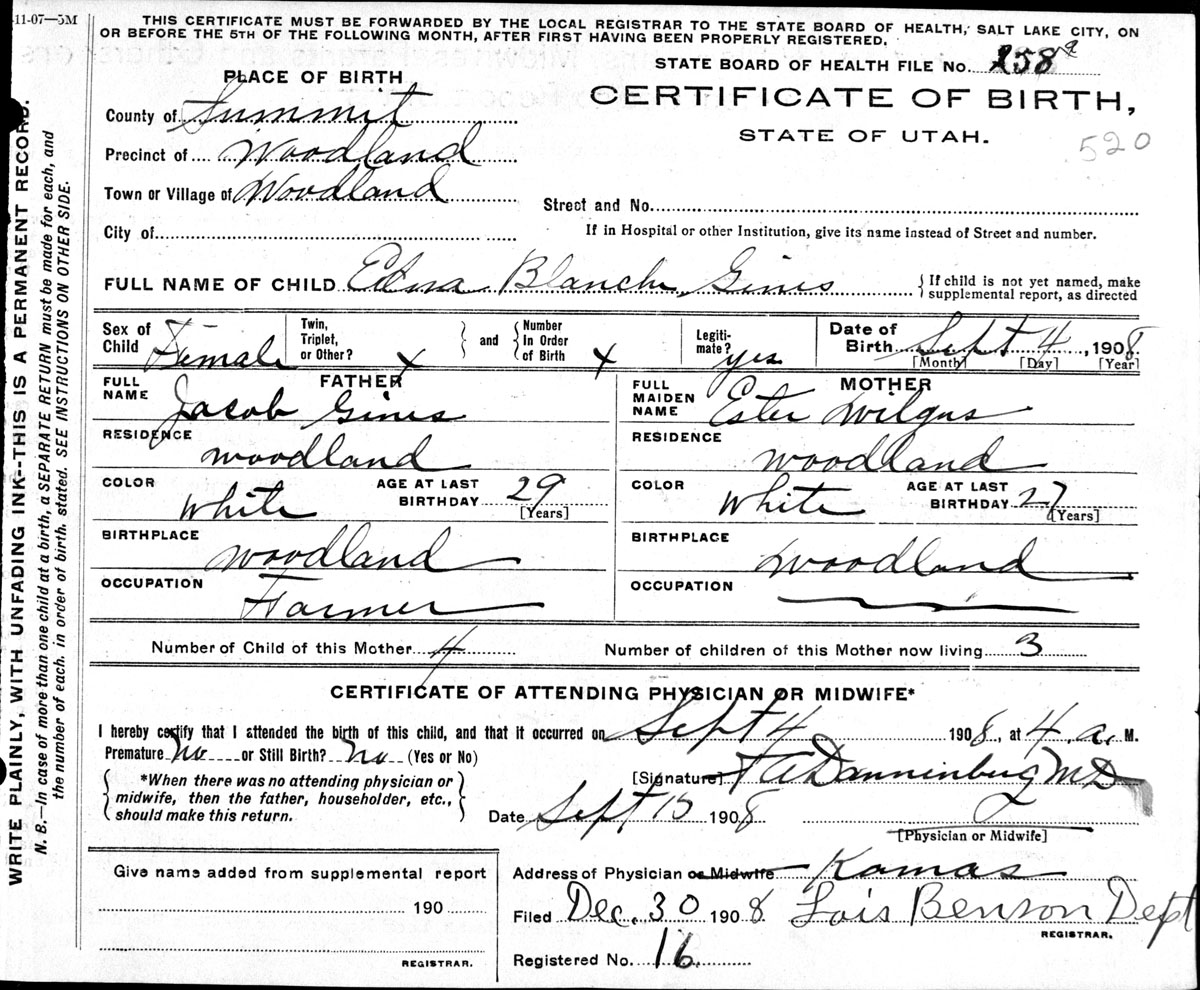 11-07—5M
THIS CERTIFICATE MUST BE FORWARDED BY THE LOCAL REGISTRAR TO THE STATE BOARD OF HEALTH, SALT LAKE CITY, ON
OR BEFORE THE 5TH OF THE FOLLOWING MONTH, AFTER FIRST HAVING BEEN PROPERLY REGISTERED.
STATE BOARD OF HEALTH FILE No. 158
PLACE OF BIRTH
CERTIFICATE OF BIRTH,
STATE OF UTAH.
520
County of Summit
Precinct of Woodland
Town or Village of Woodland
Street and No.
City of
If in Hospital or other Institution, give its name instead of Street and number.
FULL NAME OF CHILD Edna Blanche Gines
If child is not yet named, make
supplemental report, as directed
Sex of Child Female
Twin, Triplet, or Other? x
and
Number In Order of Birth x
Legiti-mate? yes
Date of Birth Sept 4, 1908
[Month] [Day] [Year]
FATHER
FULL NAME Jacob Gines
RESIDENCE Woodland
COLOR White
AGE AT LAST BIRTHDAY 29 [Years]
BIRTHPLACE Woodland
OCCUPATION Farmer
MOTHER
FULL MAIDEN NAME Ester Wilgus
RESIDENCE Woodland
COLOR White
AGE AT LAST BIRTHDAY 27 [Years]
BIRTHPLACE Woodland
OCCUPATION
Number of Child of this Mother 4
Number of children of this Mother now living 3
CERTIFICATE OF ATTENDING PHYSICIAN OR MIDWIFE*
I hereby certify that I attended the birth of this child, and that it occurred on Sept 4 1908, at 4 a. M.
Premature no or Still Birth? no (Yes or No)
*When there was no attending physician or
midwife, then the father, householder, etc.,
should make this return.
[Signature] Dannenburg MD
Date Sept 15 1908
[Physician or Midwife]
Give name added from supplemental report
190
REGISTRAR.
Address of Physician or Midwife Kamas
Filed Dec. 30 1908 Lois Benson Dept
REGISTRAR.
Registered No. 16
WRITE PLAINLY, WITH UNFADING INK--THIS IS A PERMANENT RECORD.
N. B.—In case of more than one child at a birth, a SEPARATE RETURN must be made for each, and
the number of each, in order of birth, stated. SEE INSTRUCTIONS ON OTHER SIDE.